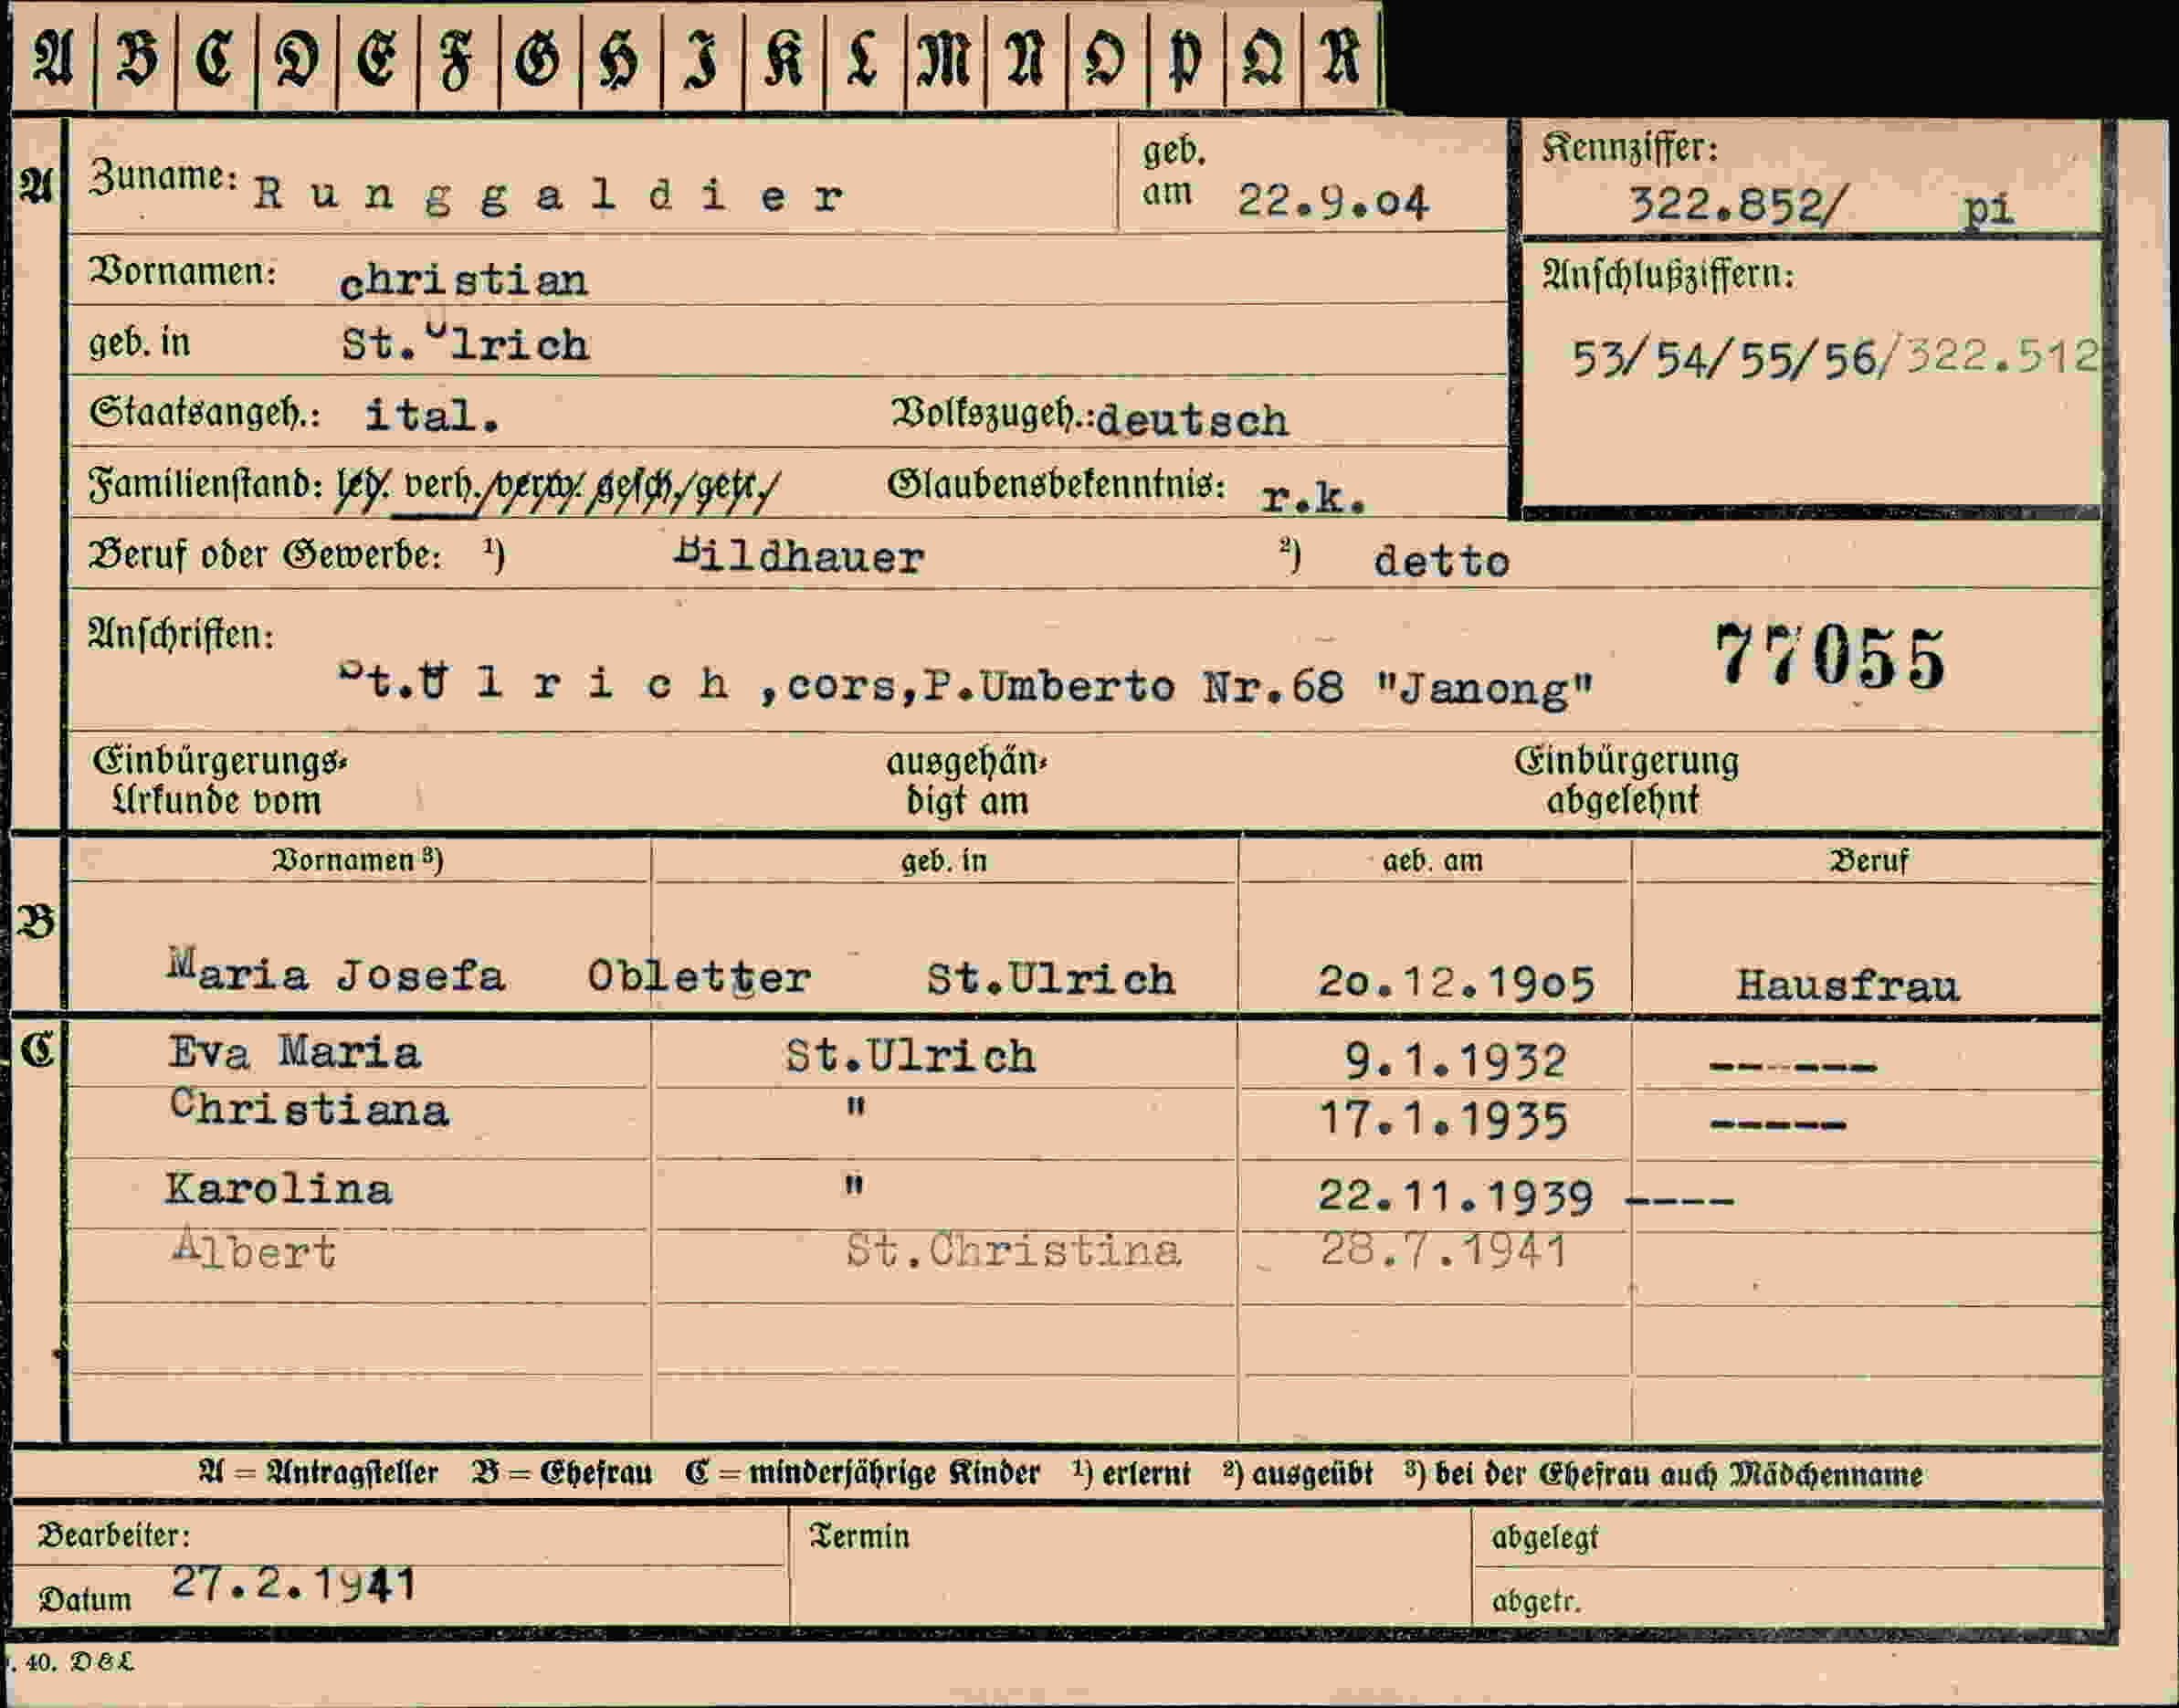 A B C D E F G H I K L M N O P Q R
A Zuname: Runggaldier geb. am 22.9.04 Kennziffer: 322.852/ pi
Vornamen: christian Anschlußziffern:
geb. in St.Ulrich 53/54/55/56/322.512
Staatsangeh.: ital. Volkszugeh.: deutsch
Familienstand: led. verh./verw. gesch./getr./ Glaubensbekenntnis: r.k.
Beruf oder Gewerbe: ¹) Bildhauer ²) detto
Anschriften: 77055
St.Ulrich,cors,P.Umberto Nr.68 "Janong"
Einbürgerungs- ausgehän- Einbürgerung
Urkunde vom digt am abgelehnt
Vornamen ³) geb. in geb. am Beruf
B
Maria Josefa Obletter St.Ulrich 20.12.1905 Hausfrau
C Eva Maria St.Ulrich 9.1.1932 ------
Christiana " 17.1.1935 -----
Karolina " 22.11.1939 ----
Albert St.Christina 28.7.1941
A = Antragsteller B = Ehefrau C = minderjährige Kinder ¹) erlernt ²) ausgeübt ³) bei der Ehefrau auch Mädchenname
Bearbeiter: Termin abgelegt
Datum 27.2.1941 abgetr.
. 40. D & L